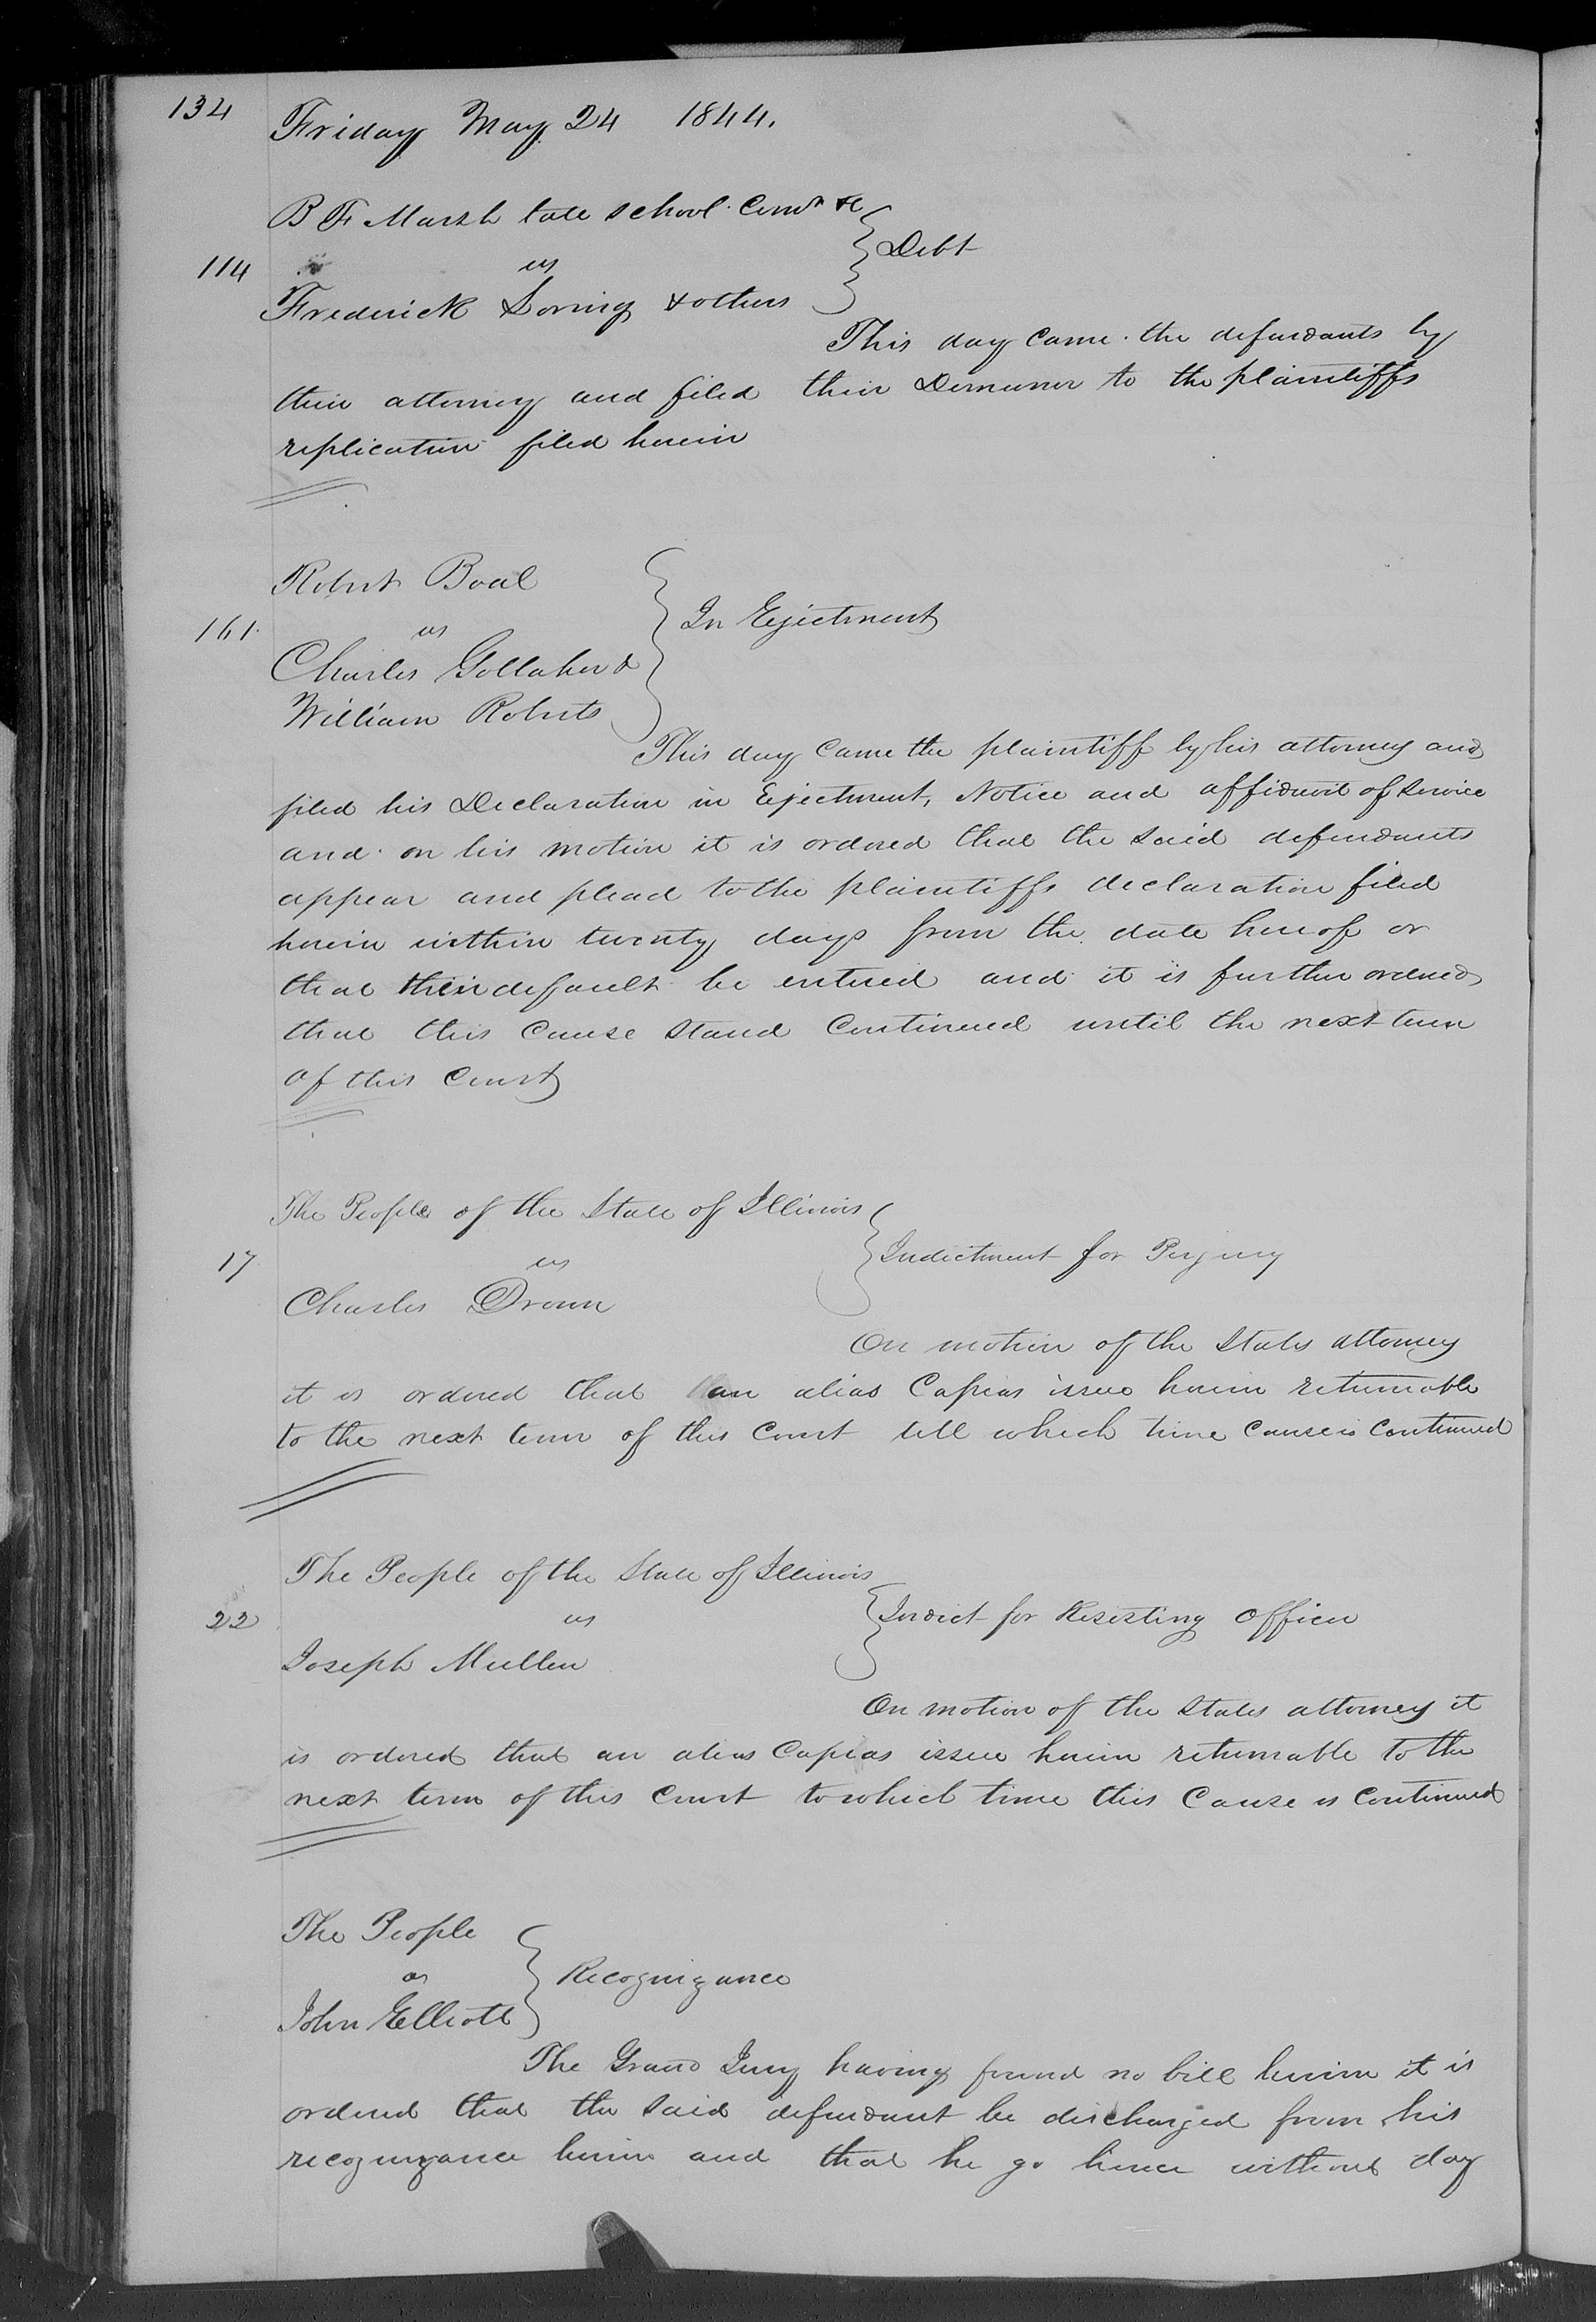 134
Friday May 24 1844.
B F Marsh late School Comr &c
Debt
114
vs
Frederick Loring & others
This day came the defendants by
their attorney and filed their Demurrer to the plaintiffs
replication filed herein
Robert Boal
In Ejectment
161.
vs
Charles Gollaher &
William Roberts
This day came the plaintiff by his attorney and
filed his Declaration in Ejectment, Notice and affidavit of Service
and on his motion it is ordered that the said defendants
appear and plead to the plaintiffs declaration filed
herein within twenty days from the date hereof or
that their default be entered and it is further ordered
that this cause stand Continued until the next term
of this Court
The People of the State of Illinois
Indictment for Perjury
17
vs
Charles Drown
On motion of the States attorney
it is ordered that an alias Capias issue herein returnable
to the next term of this Court till which time cause is Continued
The People of the State of Illinois
Indict for Resisting Officer
22
vs
Joseph Mullen
On motion of the States attorney it
is ordered that an alias Capias issue herein returnable to the
next term of this Court to which time this Cause is Continued
The People
vs
Recognizance
John Elliott
The Grand Jury having found no bill herein it is
ordered that the said defendant be discharged from his
recognizance herein and that he go hence without day